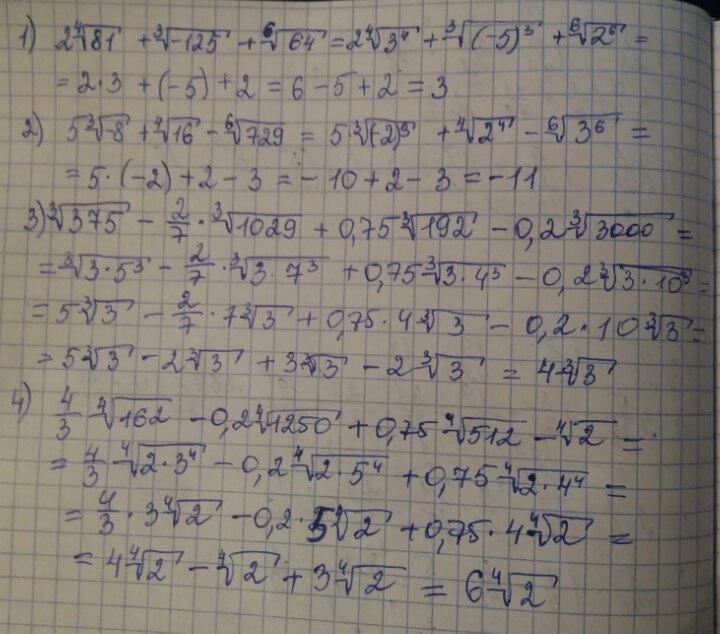 1) 2∜81 + ∛-125 + ⁶√64 = 2∜3⁴ + ∛(-5)³ + ⁶√2⁶ =
= 2·3 + (-5) + 2 = 6 - 5 + 2 = 3
2) 5∛-8 + ∜16 - ⁶√729 = 5·∛(-2)³ + ∜2⁴ - ⁶√3⁶ =
= 5·(-2) + 2 - 3 = -10 + 2 - 3 = -11
3) ∛375 - 2/7·∛1029 + 0,75∛192 - 0,2∛3000 =
= ∛3·5³ - 2/7·∛3·7³ + 0,75∛3·4³ - 0,2∛3·10³ =
= 5∛3 - 2/7·7∛3 + 0,75·4∛3 - 0,2·10∛3 =
= 5∛3 - 2∛3 + 3∛3 - 2∛3 = 4∛3
4) 4/3 ∜162 - 0,2∜1250 + 0,75∜512 - ∜2 =
= 4/3 ∜2·3⁴ - 0,2∜2·5⁴ + 0,75∜2·4⁴ =
= 4/3·3∜2 - 0,2·5∜2 + 0,75·4∜2 =
= 4∜2 - ∜2 + 3∜2 = 6∜2